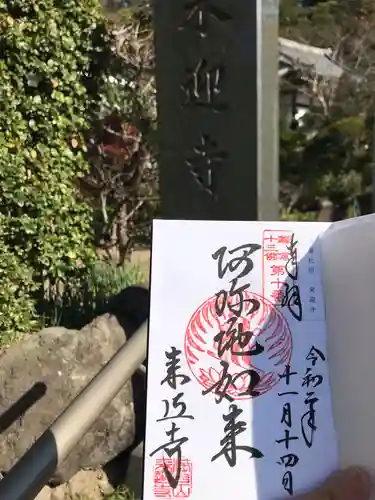 来迎寺
奉拝
鎌倉
十三佛
第十番
阿弥陀如来
来迎寺
令和二年
十一月十四日